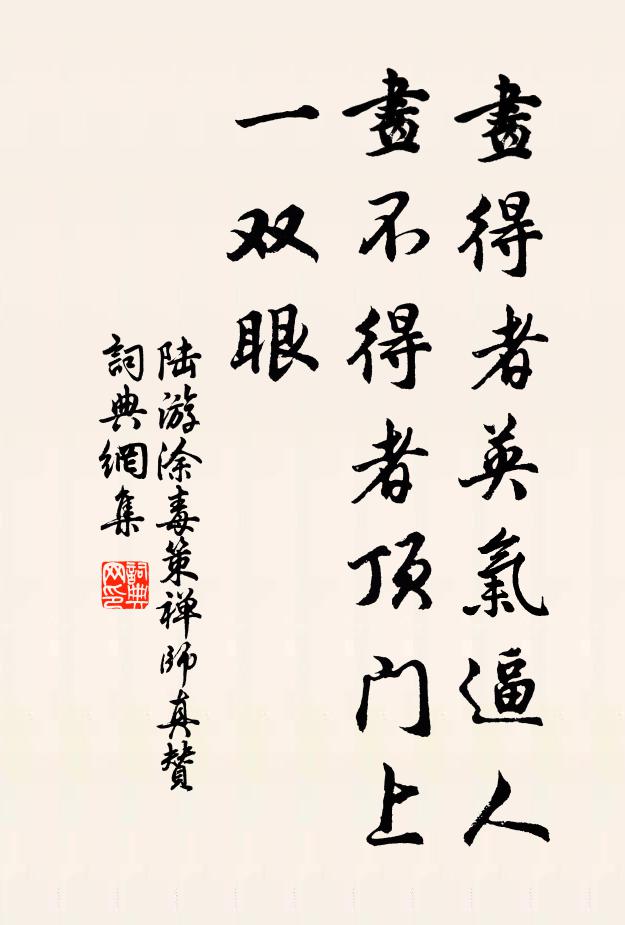 畫得者英氣逼人
畫不得者顶门上
一双眼
陆游涂毒策禅师真赞
詞典網集
詞典网印